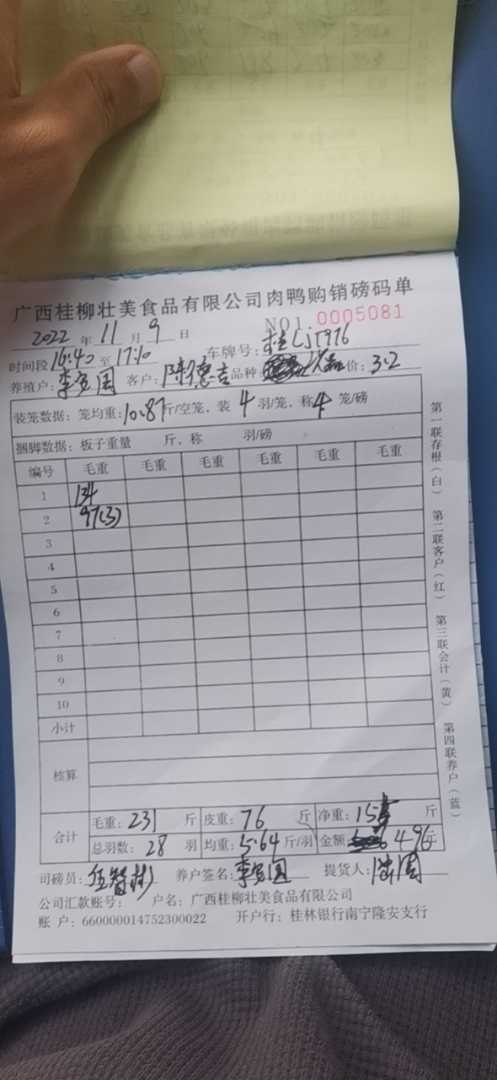 广西桂柳壮美食品有限公司肉鸭购销磅码单
2022 年 11 月 9 日 NO1 0005081
时间段 16:40 至 17:10 车牌号:
养殖户: 客户: 陈德吉 品种 价: 3.2
装笼数据: 笼均重: 10.87 斤/空笼、装 4 羽/笼、称 4 笼/磅
捆脚数据: 板子重量 斤、称 羽/磅
编号 毛重 毛重 毛重 毛重 毛重 毛重
1 134
2 97(3)
3
4
5
6
7
8
9
10
小计
核算
合计 毛重: 231 斤 皮重: 76 斤 净重: 斤
总羽数: 28 羽 均重: 5.64 斤/羽 金额: 496 元
司磅员: 养户签名: 提货人:
公司汇款账号: 户名: 广西桂柳壮美食品有限公司
账 户: 660000014752300022 开户行: 桂林银行南宁隆安支行
第一联存根(白) 第二联客户(红) 第三联会计(黄) 第四联养户(蓝)